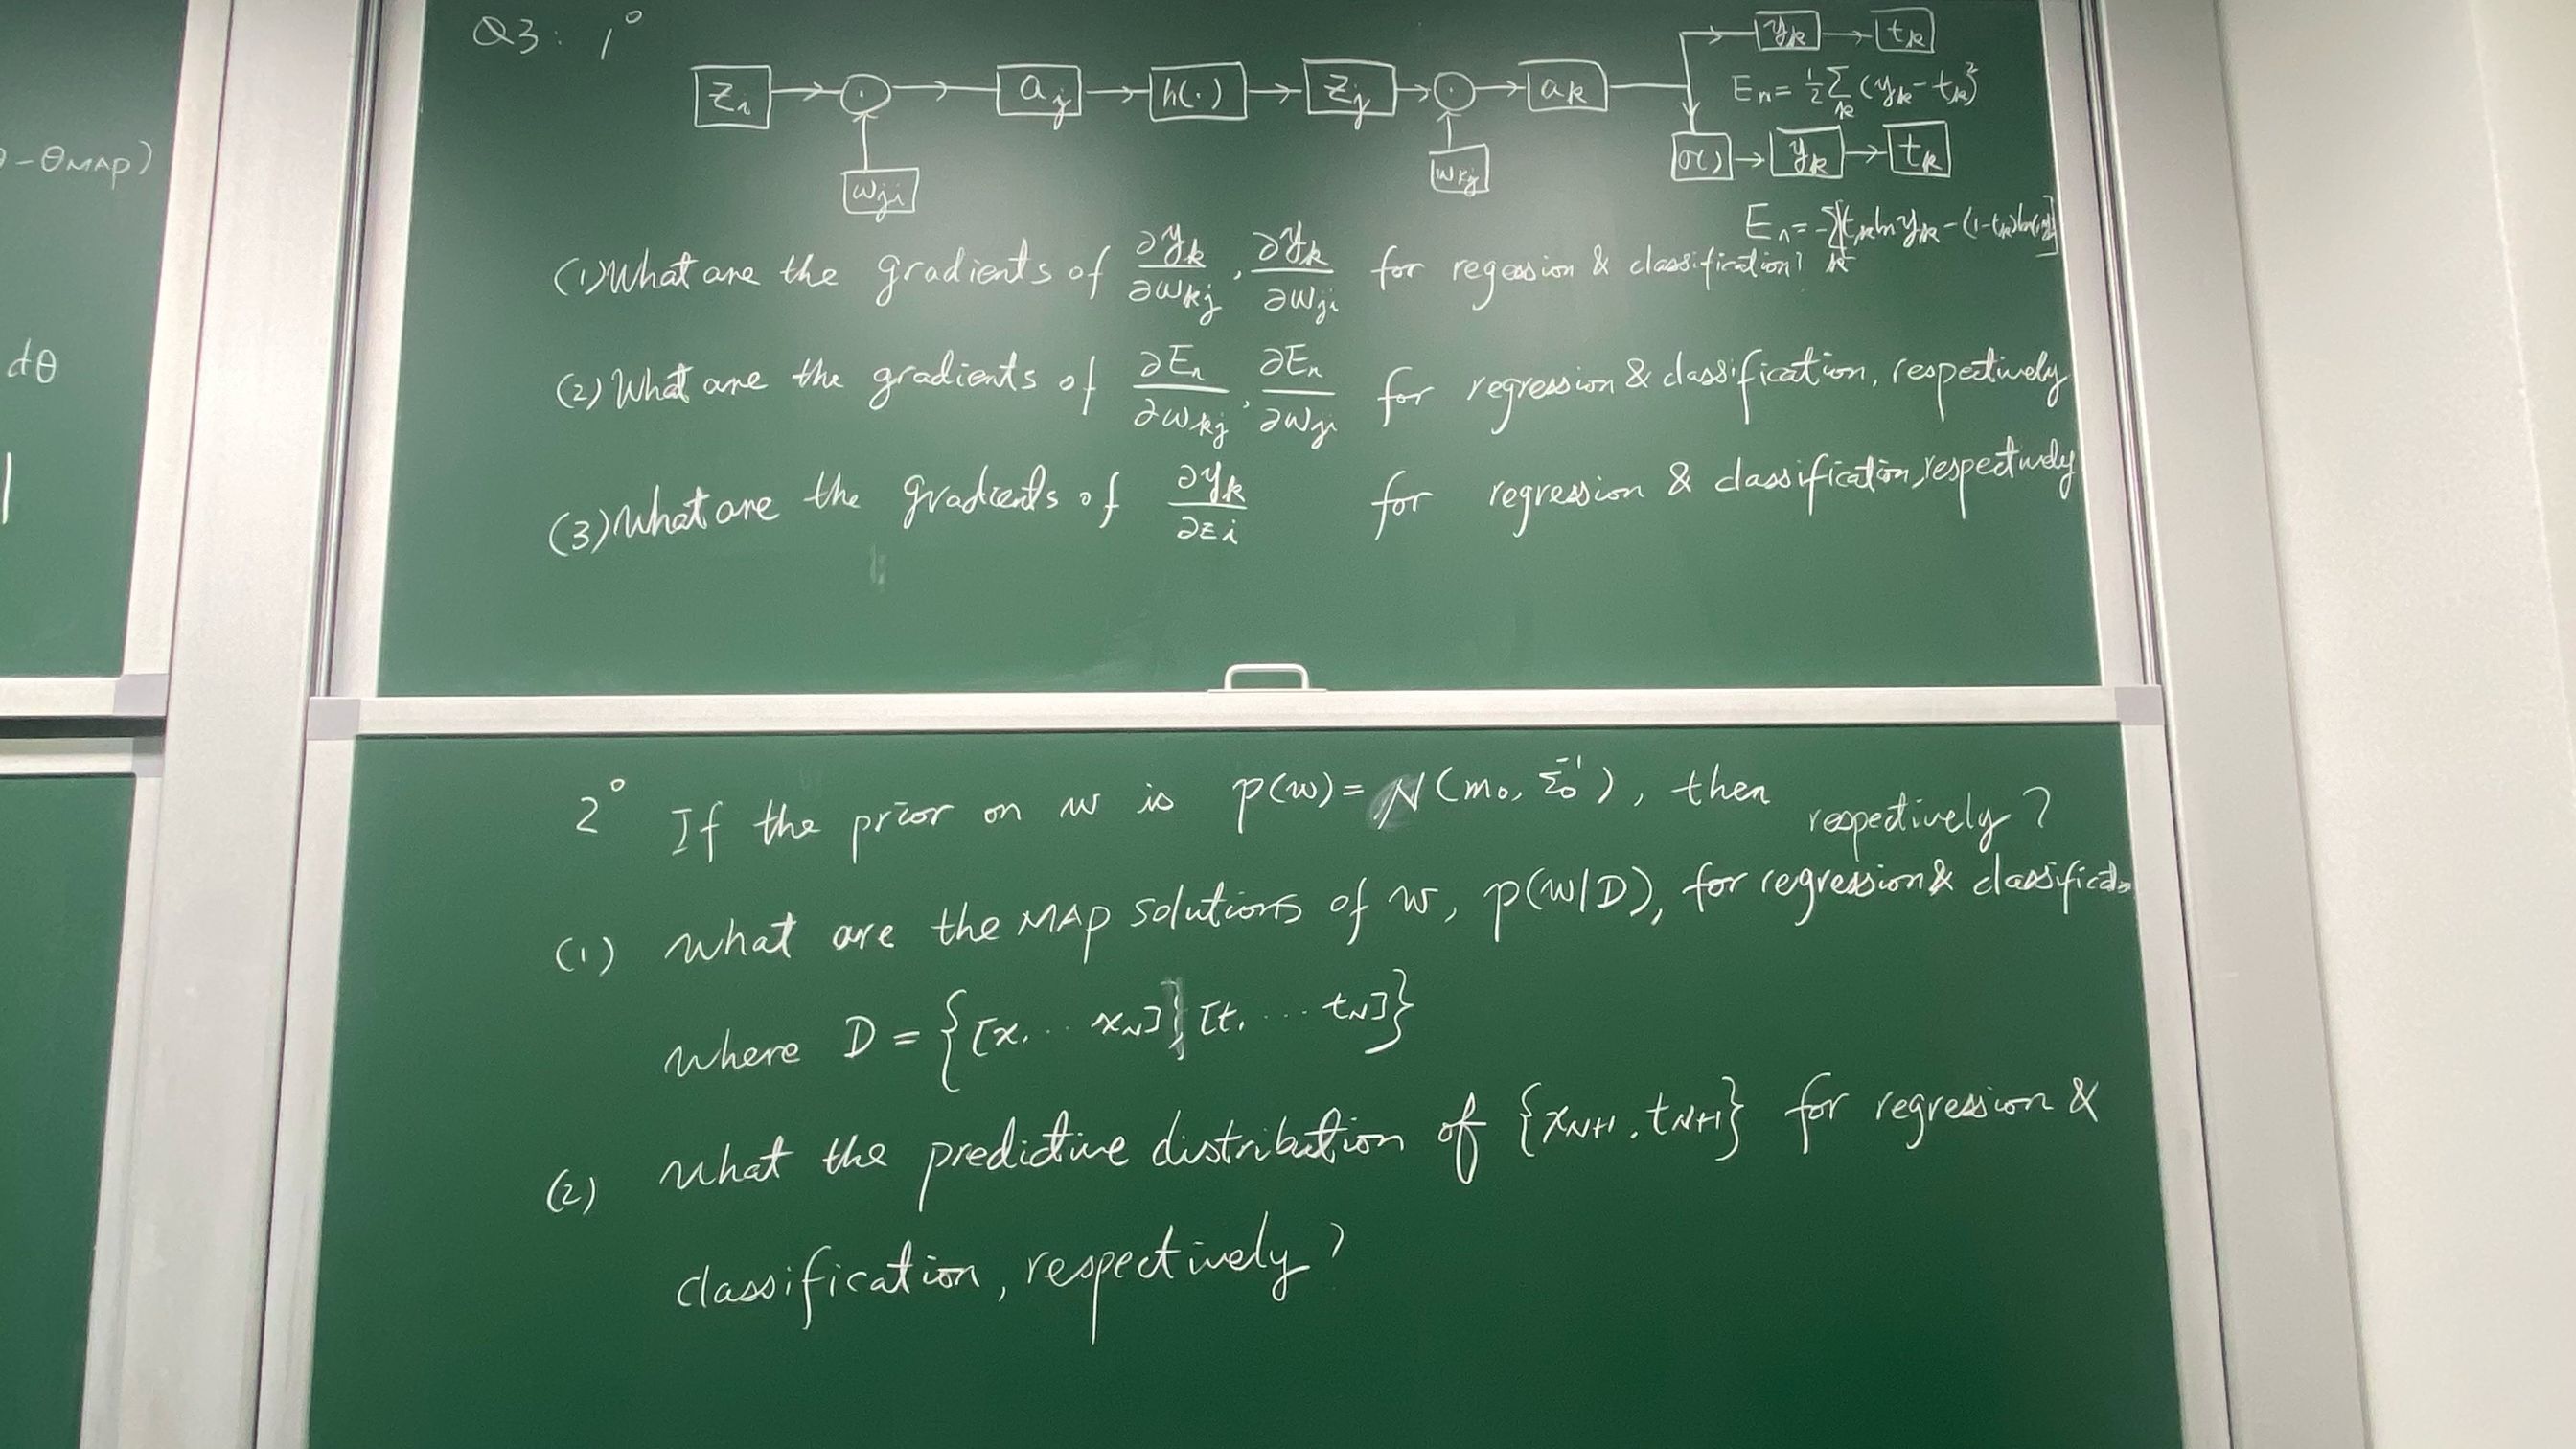 -θMAP)
dθ
Q3: 1°
zi aj h(·) zj ak yk tk
En = 1/2 Σk (yk - tk)²
wji wkj σ() yk tk
En = -Σk [tk ln yk - (1-tk) ln( ]
(1) What are the gradients of ∂yk/∂wkj, ∂yk/∂wji for regession & classification?
(2) What are the gradients of ∂En/∂wkj, ∂En/∂wji for regression & classification, respectively
(3) What are the gradients of ∂yk/∂zi for regression & classification, respectively
2° If the prior on w is p(w) = N(m₀, Σ₀⁻¹), then
respectively?
(1) what are the MAP solutions of w, p(w|D), for regression &
where D = {[x, ·· xN], [t, ··· tN]}
(2) what the predictive distribution of {xN+1, tN+1} for regression &
classification, respectively?